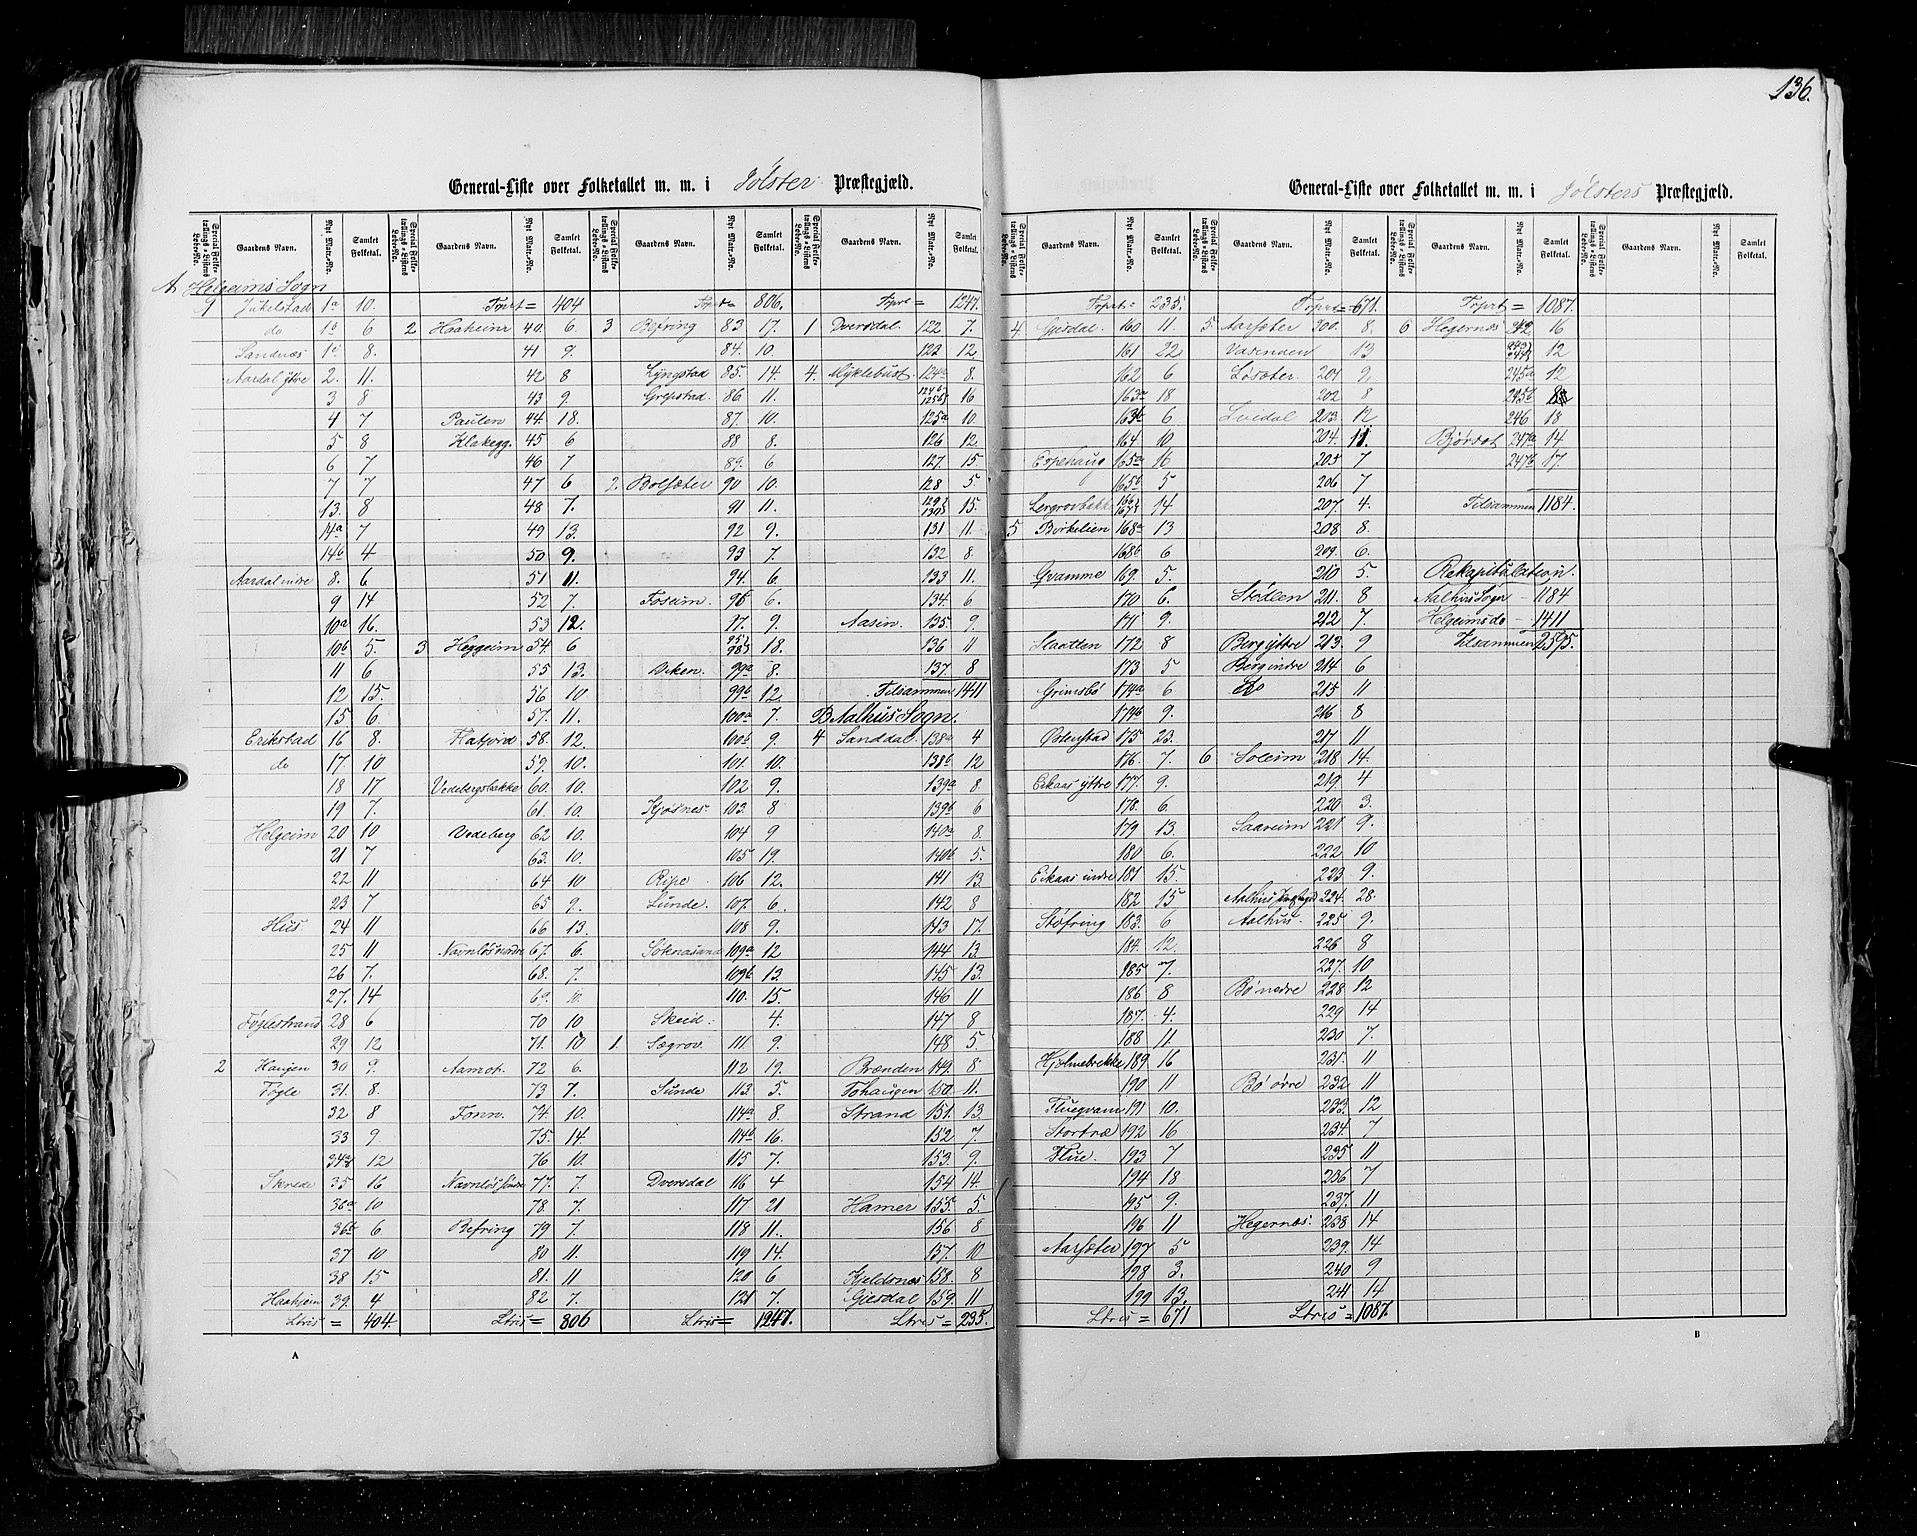 136.
General-Liste over Folketallet m. m. i Jölster Præstegjæld.
Special Folketællings-Listens Løbe-No. Gaardens Navn. Nyt Matr.-No. Samlet Folketal. Special Folketællings-Listens Løbe-No. Gaardens Navn. Nyt Matr.-No. Samlet Folketal. Special Folketællings-Listens Løbe-No. Gaardens Navn. Nyt Matr.-No. Samlet Folketal. Special Folketællings-Listens Løbe-No. Gaardens Navn. Nyt Matr.-No. Samlet Folketal.
A Helgeims Sogn
1 Jukelstad 1a 10. Trprt = 404 Trprt = 806. Trprt = 1247.
do 1b 6 2 Haaheim 40. 6. 3 Befring 83 17. 1 Dvergdal. 122 7.
Sandnæs 1c 8. 41 9. 84. 10. 123 12.
Aardal ytre 2. 11. 42 8 Lyngstad 85. 14. 4. Myklebust 124a 8.
3 8 43 9. Grepstad. 86 11. 124b 125b 16
4 7 Paulen 44. 18. 87. 10. 125a 10.
5 8 Klakegg. 45 6 88 8. 126 12.
6 7 46 7 89. 6 127. 15.
7 7 47 6 2. Bolsæter 90 10. 128 5
13. 8 48 7. 91 11. 129 130 15.
14a 7 49 13. 92 9. 131 11.
14b 4 50 9. 93 7. 132 8.
Aardal indre 8. 6 51 11. 94. 6. 133 11.
9 14 52 7. Foseim. 96 6. 134. 6
10a 16. 53 12. 97. 9. Aasen. 135. 9.
10b 5. 3 Heggeim 54 6 95 98 18. 136 11
11 6 55 13. Viken. 99a 8. 137. 8
12 15. 56 10 99b 12. Tilsammen 1411
15 6. 57. 11. 100a 7. B Aalhus Sogn.
Erikstad 16 8. Flatjord 58. 12. 100b 9. 4 Sanddal. 138a 4
do 17 10 59. 10. 101. 10. 138b 12
18 17 Vedebergsbakke 60. 10. 102 9. 139a 8.
19 7. 61. 10. Kjøsnes. 103. 8 139b 6
Helgeim 20 10 Vedeberg 62 10. 104 9 140a 8.
21 7 63. 10. 105 19. 140b 5.
22 11 64 10 Ripe 106 12. 141 13
23 7 65 9. Lunde. 107. 6. 142 8
Hus 24 11 66 13. 108 9. 143 17.
25 11 Navnløs nordre 67. 6. Søknasand 109a 12 144 13.
26 7. 68. 7. 109b 13. 145 13.
27. 14 69. 10. 110. 15. 146 11
Føglestrand 28 6 70 10 Skeid: 4. 147 8
29 12 71. 10 1. Sægrov. 111 9. 148 5.
2 Haugen 30 9. Aamot. 72 6. 112 19. Brænden 149. 8
Føgle 31. 8. 73 7. Sunde 113. 5. Tohaugen 150. 11.
32 8 Fonn. 74. 10. 114a 8. Strand 151. 13.
33 9. 75. 14. 114b 16. 152 7.
34ab 12 76 10. 115 7. 153. 9.
Skrede 35 16 Navnløs søndre 77. 7. Dvergdal 116 4 154 14.
36a 10 78. 7. 117 21 Hamer 155. 5.
36b 6 Befring 79 7. 118 11. 156 8
37 10 80 11. 119 14. 157. 10
38 15 81. 11 120 6 Kjeldsnes 158. 8
Haaheim 39. 4 82 7. 121 7. Gjesdal 159. 11
Ltris = 404. Ltris = 806 Ltris = 1247. Ltris = 235.
A
General-Liste over Folketallet m. m. i Jölsters Præstegjæld.
Special Folketællings-Listens Løbe-No. Gaardens Navn. Nyt Matr.-No. Samlet Folketal. Special Folketællings-Listens Løbe-No. Gaardens Navn. Nyt Matr.-No. Samlet Folketal. Special Folketællings-Listens Løbe-No. Gaardens Navn. Nyt Matr.-No. Samlet Folketal. Special Folketællings-Listens Løbe-No. Gaardens Navn. Nyt Matr.-No. Samlet Folketal.
Trprt = 235. Trprt = 671. Trprt = 1087.
4. Gjesdal. 160 11. 5. Aarsæter 200. 8. 6 Hegernæs 242 16
161 22 Vasenden 13 243 244 12
162 6 Løsæter. 201 9. 245a 12
163a 18 202 8 245b
163b 6 Svidal 203. 12 246 18
164. 10 204. 11. Bjørset 247a 14
Espehaug 165a 16 205 7 247b 17.
165b 5 206 7
Lergrovbakk 166 167 14 207. 4. Tilsammen 1184.
5 Birkelien 168a 13 208 8.
168b 6 209. 6.
Gvamme 169. 5. 210 5. Rekapitulation.
170 6. Stölen 211. 8 Aalhus Sogn – 1184
171 9. 212 7. Helgeims do – 1411
Slaatten 172 8 Berg ytre 213. 9 Tilsammen 2595.
173 5 Berg indre 214 6
Grimsbö 174a 6 do 215 11
174b 9. 216 8
Østenstad 175 23. 217 11
176. 7. 6 Soleim 218 14.
Eikaas ytre 177. 9. 219. 4
178. 6. 220 3.
179 13. Saareim 221 9.
180 6. 222 10
Eikaas indre 181 15. 223 9.
182 15 Aalhus Prestegd 224. 28.
Støfring 183. 6 Aalhus. 225. 9.
184. 12. 226 8
185 7. 227. 10
186 8 Bö nedre 228. 12
187. 4. 229 14
188 11. 230 7.
Hjelmebrekke 189 16 231. 11
190 11 Bö övre 232 11
Fluegvam 191 10. 233. 12
Stortræ 192 16 234. 7
Flue. 193 7 235 11
194 18 236 7
195 9. 237. 11
196 11 Hegernæs. 238 14
Aarsæter 197 5 239. 14
198 3. 240 9
199 13. 241 14
Ltris = 671 Ltris = 1087.
B